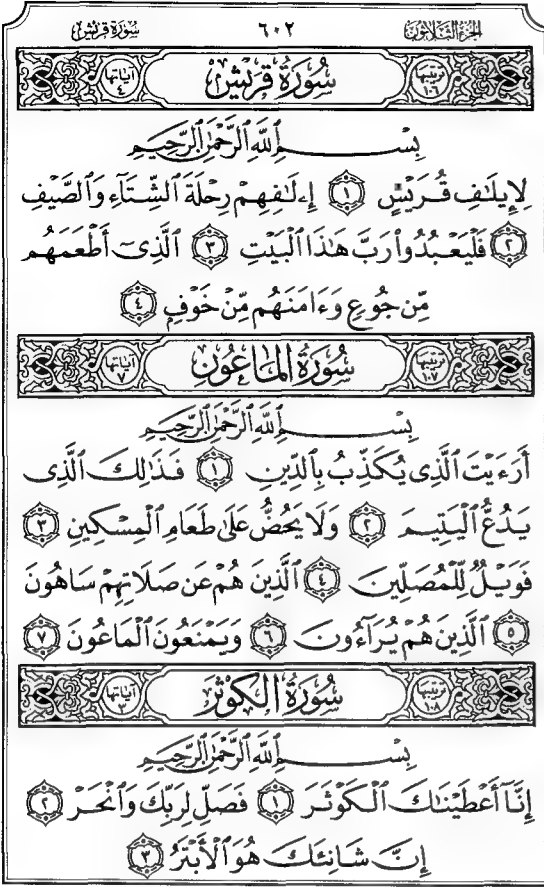 الجزء الثلاثون ٦٠٢ سورة قريش
ترتيبها ١٠٦ سُورَةُ قُرَيْشٍ آياتها ٤
بِسْمِ ٱللَّهِ ٱلرَّحْمَٰنِ ٱلرَّحِيمِ
لِإِيلَٰفِ قُرَيْشٍ ١ إِۦلَٰفِهِمْ رِحْلَةَ ٱلشِّتَآءِ وَٱلصَّيْفِ
٢ فَلْيَعْبُدُوا۟ رَبَّ هَٰذَا ٱلْبَيْتِ ٣ ٱلَّذِىٓ أَطْعَمَهُم
مِّن جُوعٍ وَءَامَنَهُم مِّنْ خَوْفٍۭ ٤
ترتيبها ١٠٧ سُورَةُ المَاعُونِ آياتها ٧
بِسْمِ ٱللَّهِ ٱلرَّحْمَٰنِ ٱلرَّحِيمِ
أَرَءَيْتَ ٱلَّذِى يُكَذِّبُ بِٱلدِّينِ ١ فَذَٰلِكَ ٱلَّذِى
يَدُعُّ ٱلْيَتِيمَ ٢ وَلَا يَحُضُّ عَلَىٰ طَعَامِ ٱلْمِسْكِينِ ٣
فَوَيْلٌ لِّلْمُصَلِّينَ ٤ ٱلَّذِينَ هُمْ عَن صَلَاتِهِمْ سَاهُونَ
٥ ٱلَّذِينَ هُمْ يُرَآءُونَ ٦ وَيَمْنَعُونَ ٱلْمَاعُونَ ٧
ترتيبها ١٠٨ سُورَةُ الكَوْثَرِ آياتها ٣
بِسْمِ ٱللَّهِ ٱلرَّحْمَٰنِ ٱلرَّحِيمِ
إِنَّآ أَعْطَيْنَٰكَ ٱلْكَوْثَرَ ١ فَصَلِّ لِرَبِّكَ وَٱنْحَرْ ٢
إِنَّ شَانِئَكَ هُوَ ٱلْأَبْتَرُ ٣